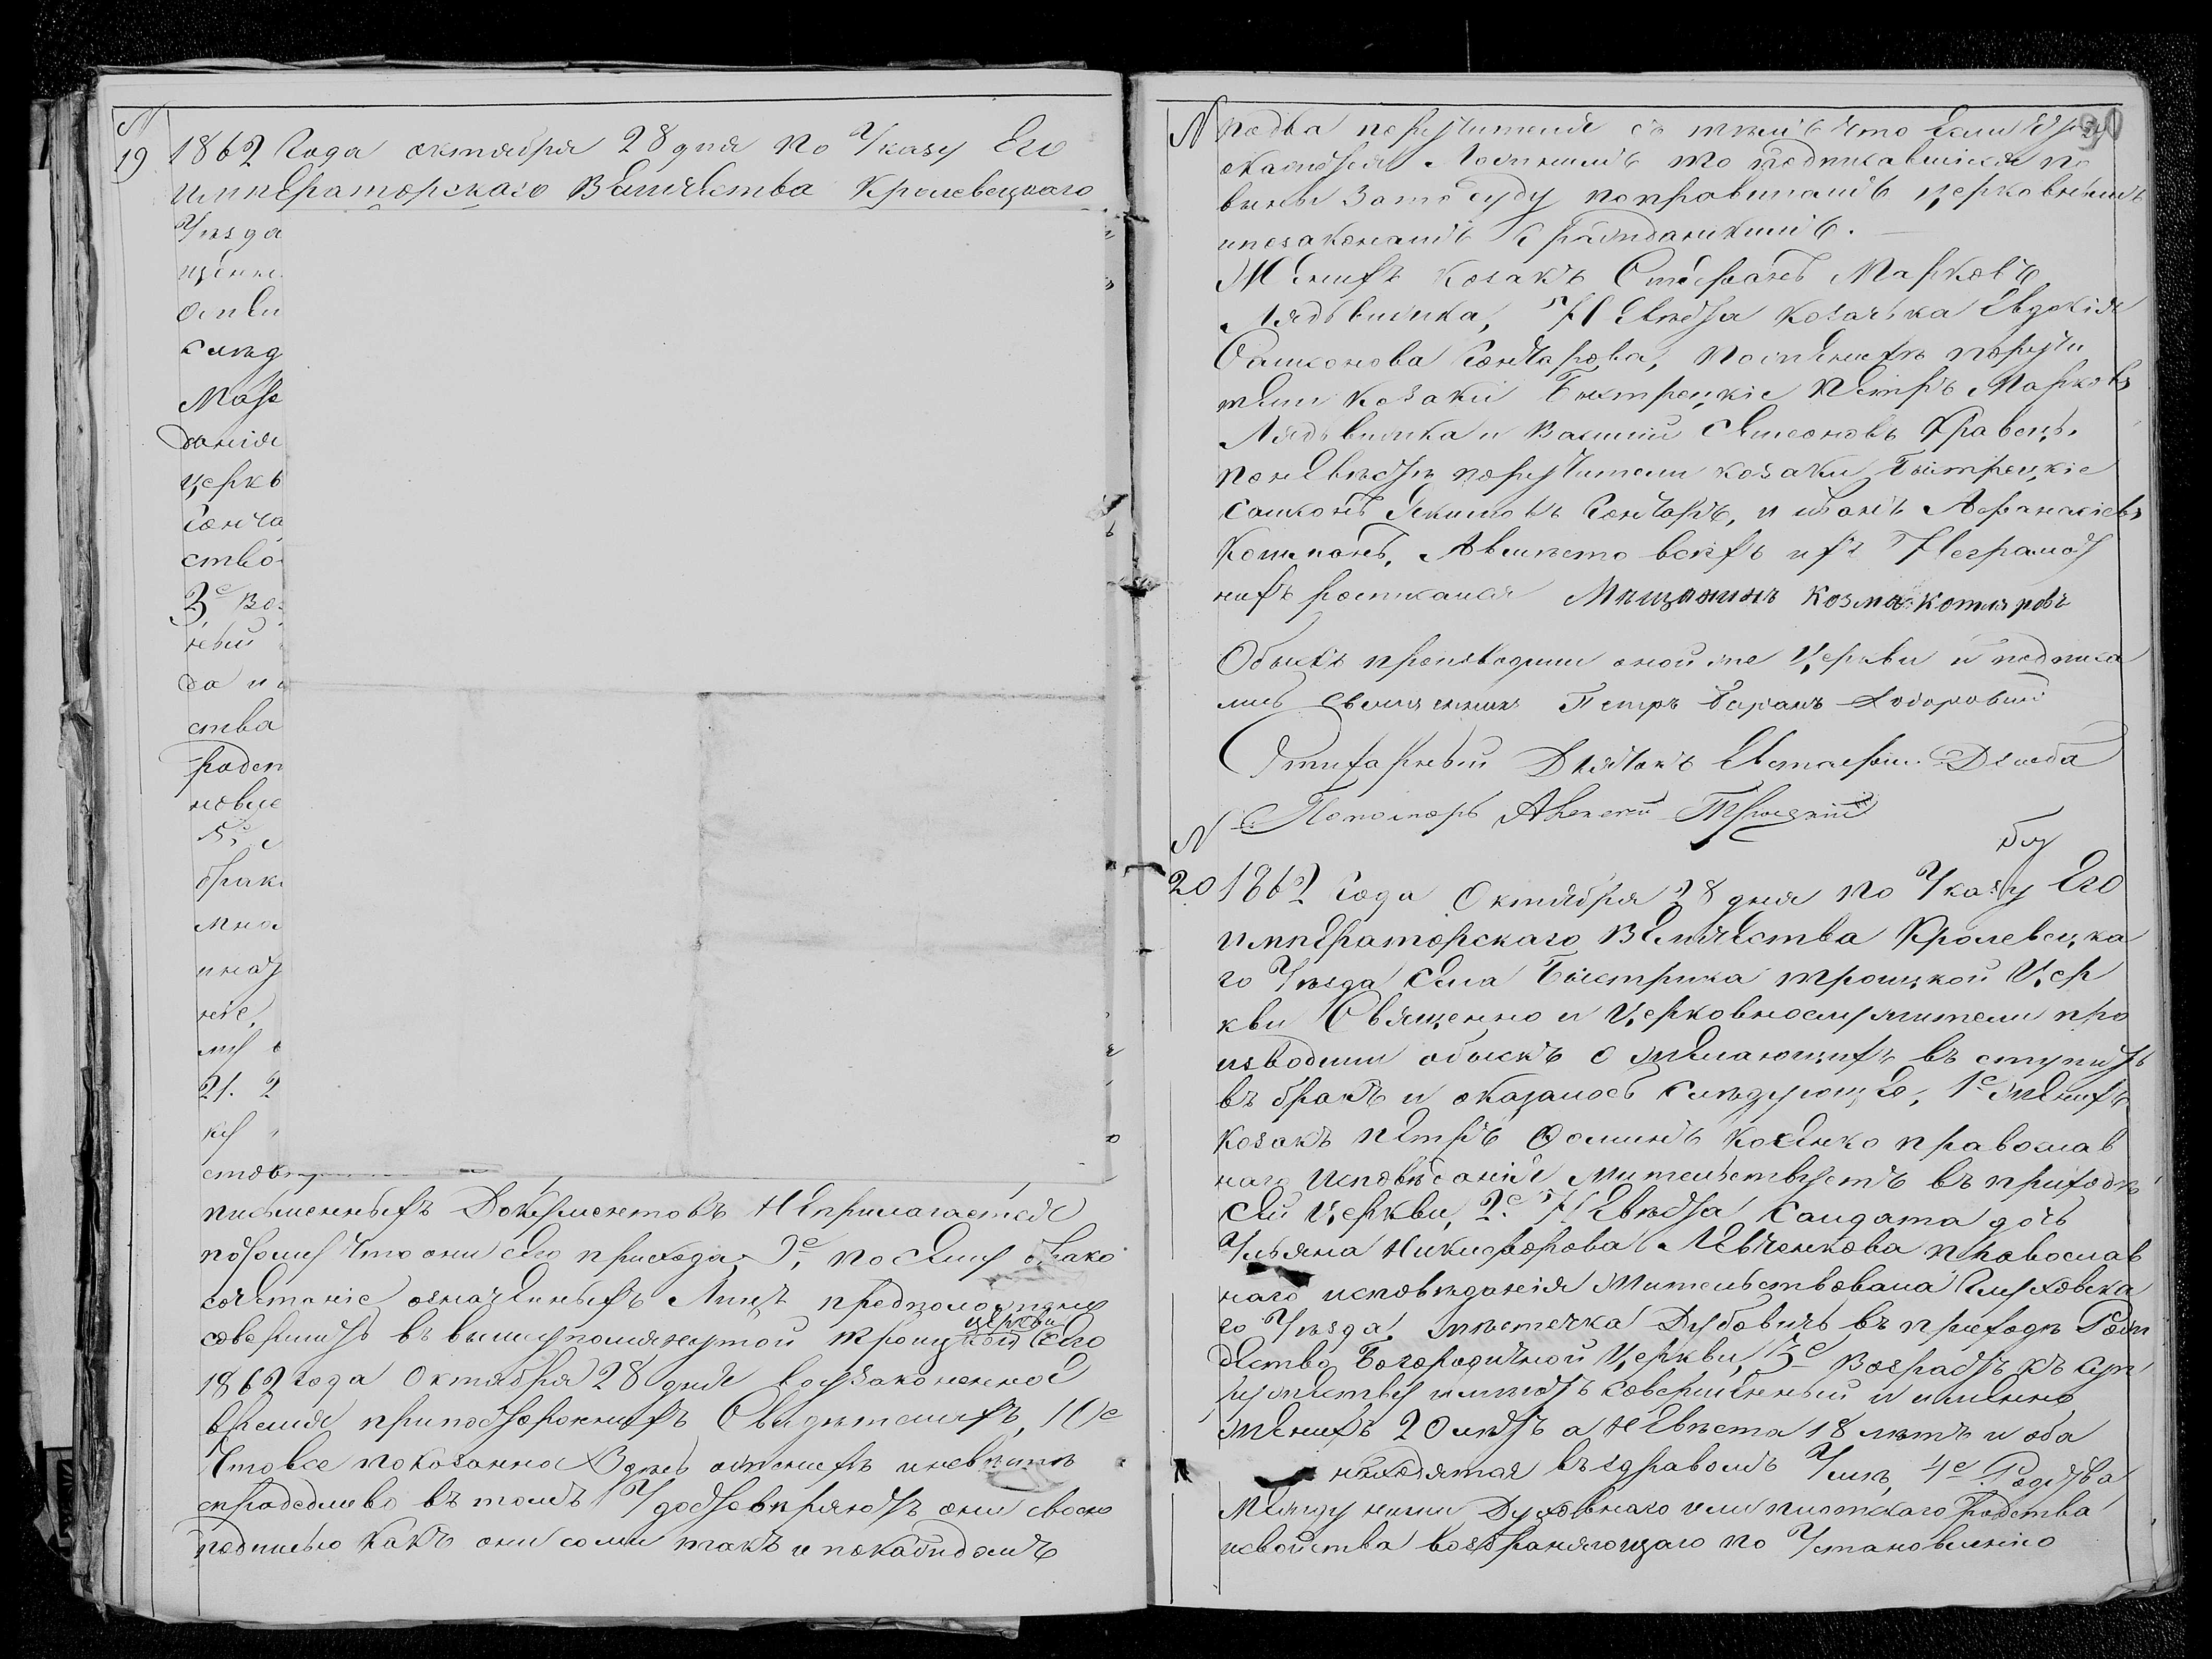 N
19 1862 Года октября 28 дня по Указу Его
императорскаго Величества Кролевецкаго
Уезда
щенно
слѣд
Маре
данія
церкв
Гонча
ство
3е Воз
ный
да и
ства
родст
новле
5е
брак
мно
21. 2
письменныхъ Документовъ Неприлагается
потому что они сего прихода, 9е, по сему брако
сочетаніе означенныхъ Лицъ предположено
совершить въ вышеупомянутой троицкой церкви Сего
1862 года Октября 28 дня въ узаконенное
время припостороннихъ Свидетеляхъ, 10е
Что все показанно Здесь о женихе и невесте
справедливо въ томъ Удостоверяютъ они своею
подписью какъ они сами такъ и покаждомъ
N подва поручителя съ темъ что если что
окажется Ложнымъ то подписавшіеся по
винны Затосуду поправиламъ церковнымъ
ипозаконамъ Гражданскимъ.
Женихъ козакъ Стефанъ Марковъ
Лядвинка, Невеста козачка Евдокія
Самсонова Гончарова, пожениху поручи
тели козаки Быстрецкіе Петръ Марковъ
и Василій Симеоновъ Кравецъ,
поневесте поручители козаки Быстрецкіе
Самсонъ Якимовъ Гончаръ, и Иванъ Афанасіевъ
Авместо всехъ ихъ Неграмот
ныхъ росписался Мещанинъ Козма Котляровъ
Обыскъ производили оной же Церкви и подписа
лись Священникъ Петръ Баранъ Ходоровский
Дьячокъ Евстафій Дзюба
Пономарь Алексей
N
20 1862 Года Октября 28 дня по Указу Его
императорскаго Величества Кролевецка
го Уезда Села Быстрика троицкой Цер
кви Священно и Церковнослужители про
изводили обыскъ о желающихъ вступить
въ бракъ и оказалось следующее, 1е Женихъ
козакъ Петръ Фоминъ православ
наго исповеданія жительствуетъ въ приходе
сей Церкви, 2е Невеста Салдата дочь
Ульяна Никифорова Левченкова православ
наго исповеданія жительствовала Глуховска
го Уезда местечка Дубовичъ въ приходе Рож
дество Богородичной Церкви, 3е Возрастъ къ суп
ружеству имеютъ совершенный и именно
женихъ 20 летъ а Невеста 18 летъ и оба
находятся въ здравомъ Уме, 4е Родства
Между ними Духовнаго или плотскаго родства
исвойства возбраняющаго по Установленію